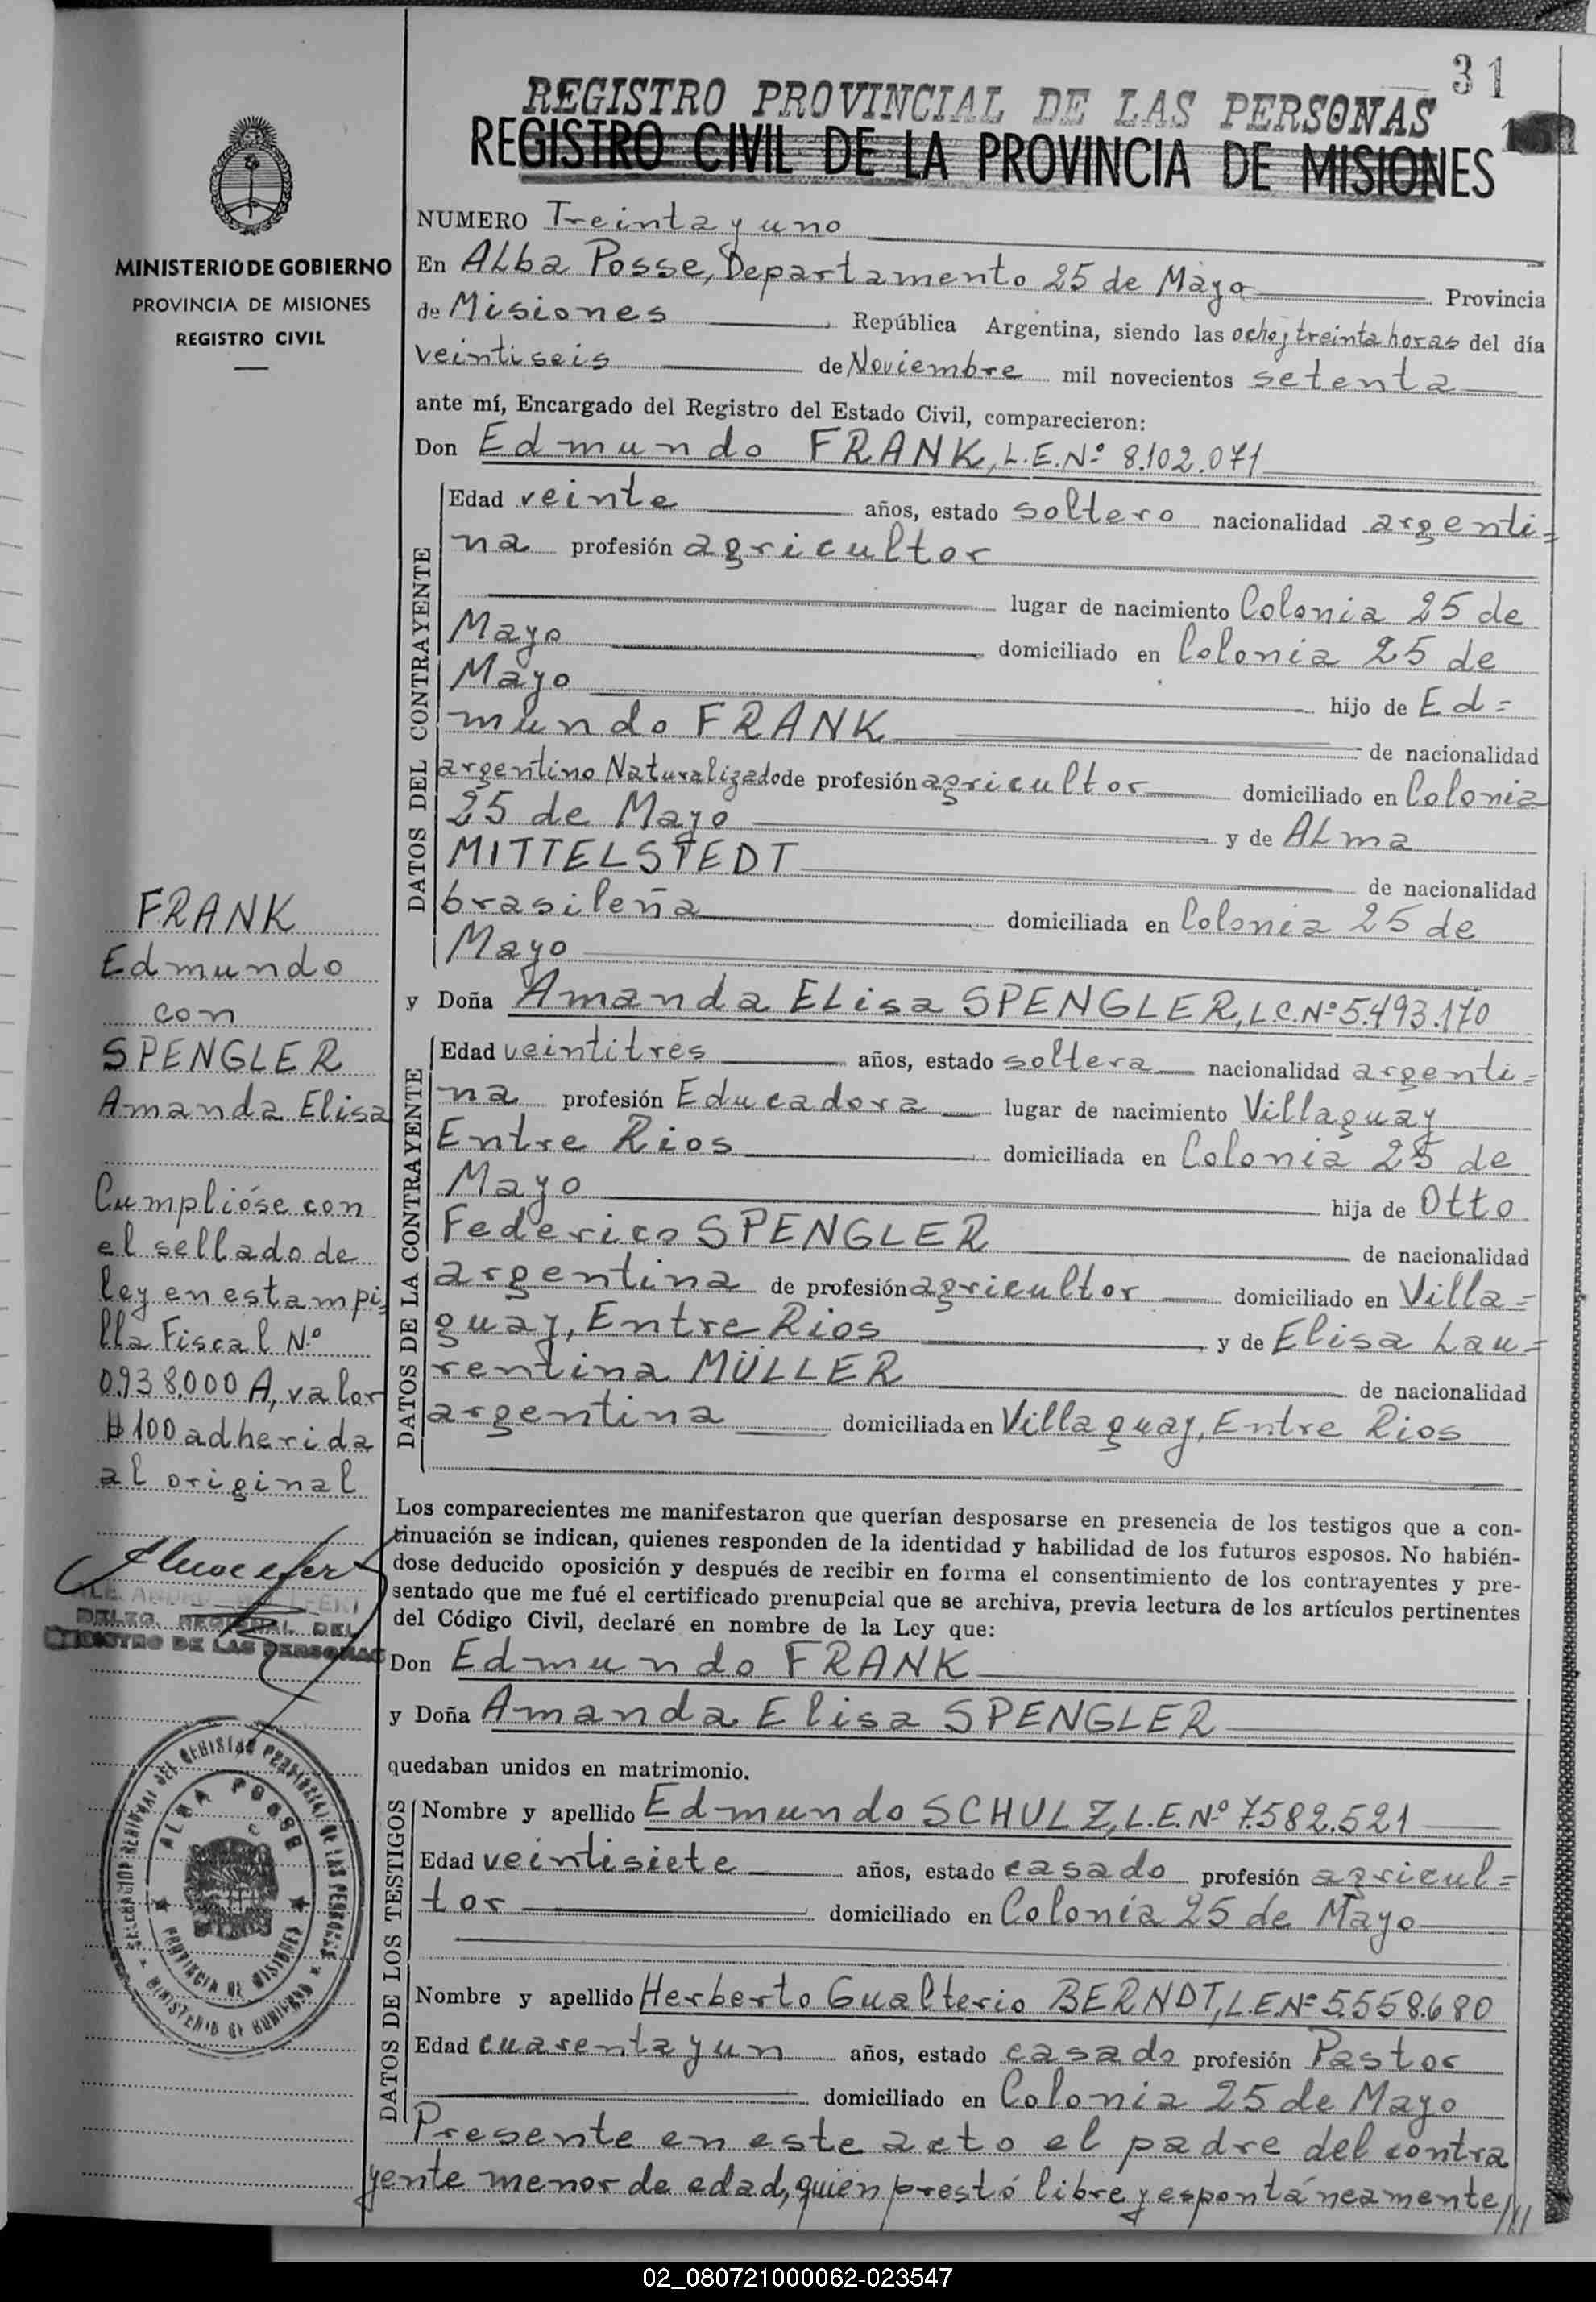 31
REGISTRO PROVINCIAL DE LAS PERSONAS
REGISTRO CIVIL DE LA PROVINCIA DE MISIONES
MINISTERIO DE GOBIERNO
PROVINCIA DE MISIONES
REGISTRO CIVIL
NUMERO Treinta y uno
En Alba Posse, Departamento 25 de Mayo Provincia
de Misiones República Argentina, siendo las ocho y treinta horas del día
veintiseis de Noviembre mil novecientos setenta
ante mí, Encargado del Registro del Estado Civil, comparecieron:
Don Edmundo FRANK, L.E.Nº 8.102.071
DATOS DEL CONTRAYENTE
Edad veinte años, estado soltero nacionalidad argenti=
na profesión agricultor
lugar de nacimiento Colonia 25 de
Mayo domiciliado en Colonia 25 de
Mayo hijo de Ed=
mundo FRANK de nacionalidad
argentino Naturalizado de profesión agricultor domiciliado en Colonia
25 de Mayo y de Alma
MITTELSTEDT de nacionalidad
brasileña domiciliada en Colonia 25 de
Mayo
y Doña Amanda Elisa SPENGLER, L.C.Nº 5.493.170
DATOS DE LA CONTRAYENTE
Edad veintitres años, estado soltera nacionalidad argenti=
na profesión Educadora lugar de nacimiento Villaguay
Entre Rios domiciliada en Colonia 25 de
Mayo hija de Otto
Federico SPENGLER de nacionalidad
argentina de profesión agricultor domiciliado en Villa=
guay, Entre Rios y de Elisa Lau=
rentina MÜLLER de nacionalidad
argentina domiciliada en Villaguay, Entre Rios
Los comparecientes me manifestaron que querían desposarse en presencia de los testigos que a con-
tinuación se indican, quienes responden de la identidad y habilidad de los futuros esposos. No habién-
dose deducido oposición y después de recibir en forma el consentimiento de los contrayentes y pre-
sentado que me fué el certificado prenupcial que se archiva, previa lectura de los artículos pertinentes
del Código Civil, declaré en nombre de la Ley que:
Don Edmundo FRANK
y Doña Amanda Elisa SPENGLER
quedaban unidos en matrimonio.
DATOS DE LOS TESTIGOS
Nombre y apellido Edmundo SCHULZ, L.E.Nº 7.582.521
Edad veintisiete años, estado casado profesión agricul=
tor domiciliado en Colonia 25 de Mayo
Nombre y apellido Herberto Gualterio BERNDT, L.E.Nº 5.558.680
Edad cuarenta y un años, estado casado profesión Pastor
domiciliado en Colonia 25 de Mayo
Presente en este acto el padre del contra
yente menor de edad, quien prestó libre y espontáneamente///
FRANK
Edmundo
con
SPENGLER
Amanda Elisa
Cumplióse con
el sellado de
ley en estampi=
lla Fiscal Nº
0938.000 A, valor
$100 adherida
al original
DELEG. REGIONAL DEL
REGISTRO DE LAS PERSONAS
DELEGACION REGIONAL DEL REGISTRO PROVINCIAL DE LAS PERSONAS
ALBA POSSE
PROVINCIA DE MISIONES
MINISTERIO DE GOBIERNO
02_080721000062-023547